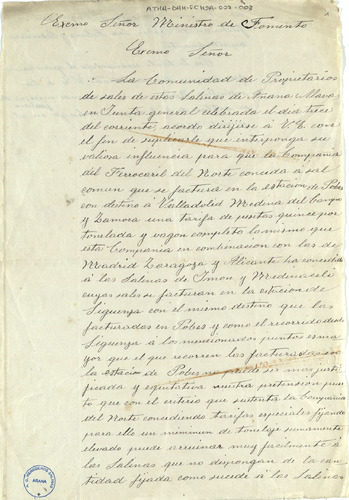 ATHA-DAH-FCHSA-007-002
Excmo Señor Ministro de Fomento
Excmo Señor
La Comunidad de Propietarios
de sales de estas Salinas de Añana Alava
en Junta general celebrada el dia trece
del corriente, acordo dirijirse á V.E. con
el fin de suplicarle que interponga su
valiosa influencia para que la Compañia
del Ferrocaril del Norte conceda á sal
comun que se factura en la estacion de Pobes
con destino á Valladolid Medina del Campo
y Zamora una tarifa de pesetas quince por
tonelada y vagon completo lo mismo que
esta Compañia en combinacion con las de
Madrid Zaragoza y Alicante ha concedido
á las Salinas de Imon y Medinaceli
cuyas sales se facturan en la estacion de
Siguenza con el mismo destino que las
facturadas en Pobes y como el recorrido desde
Siguenza á los mencionados puntos es ma
yor que el que recorren las facturadas en
la estacion de Pobes no puede ser mas justi
ficada y equitativa nuestra pretension pues
to que con el criterio que sustenta la Compañia
del Norte concediendo tarifas especiales fijando
para ello un minimun de tonelaje sumamente
elevado puede arruinar muy facilmente á
las Salinas que no dispongan de la can
tidad fijada como sucede á las Salinas
AÑANA